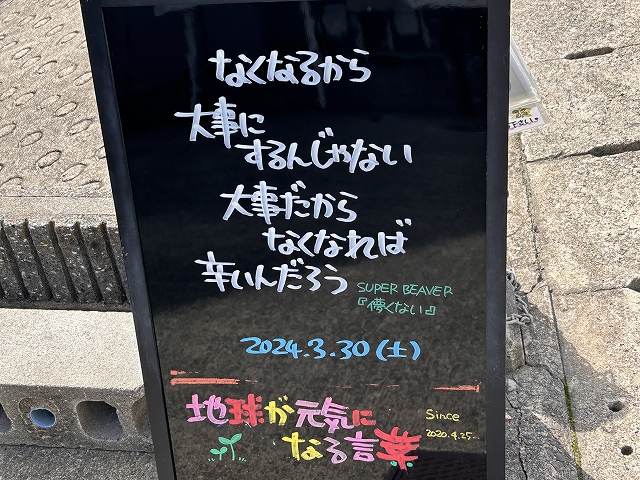 なくなるから
大事に
するんじゃない
大事だから
なくなれば
辛いんだろう
SUPER BEAVER
『儚くない』
2024.3.30(土)
地球が元気に
なる言葉
Since
2020.4.25...
下さい。